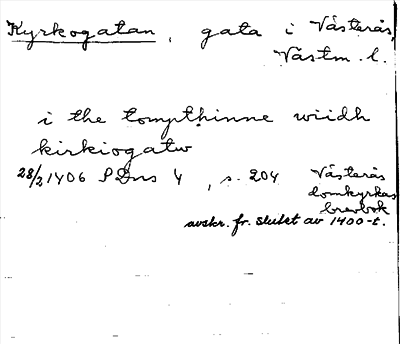 Kyrkogatan, gata i Västerås,
Västm. l.
i the tompthinne wiidh
kirkiogatw
28/2 1406 SDns 4, s. 204 Västerås
domkyrkas
brevbok
avskr. fr. slutet av 1400-t.